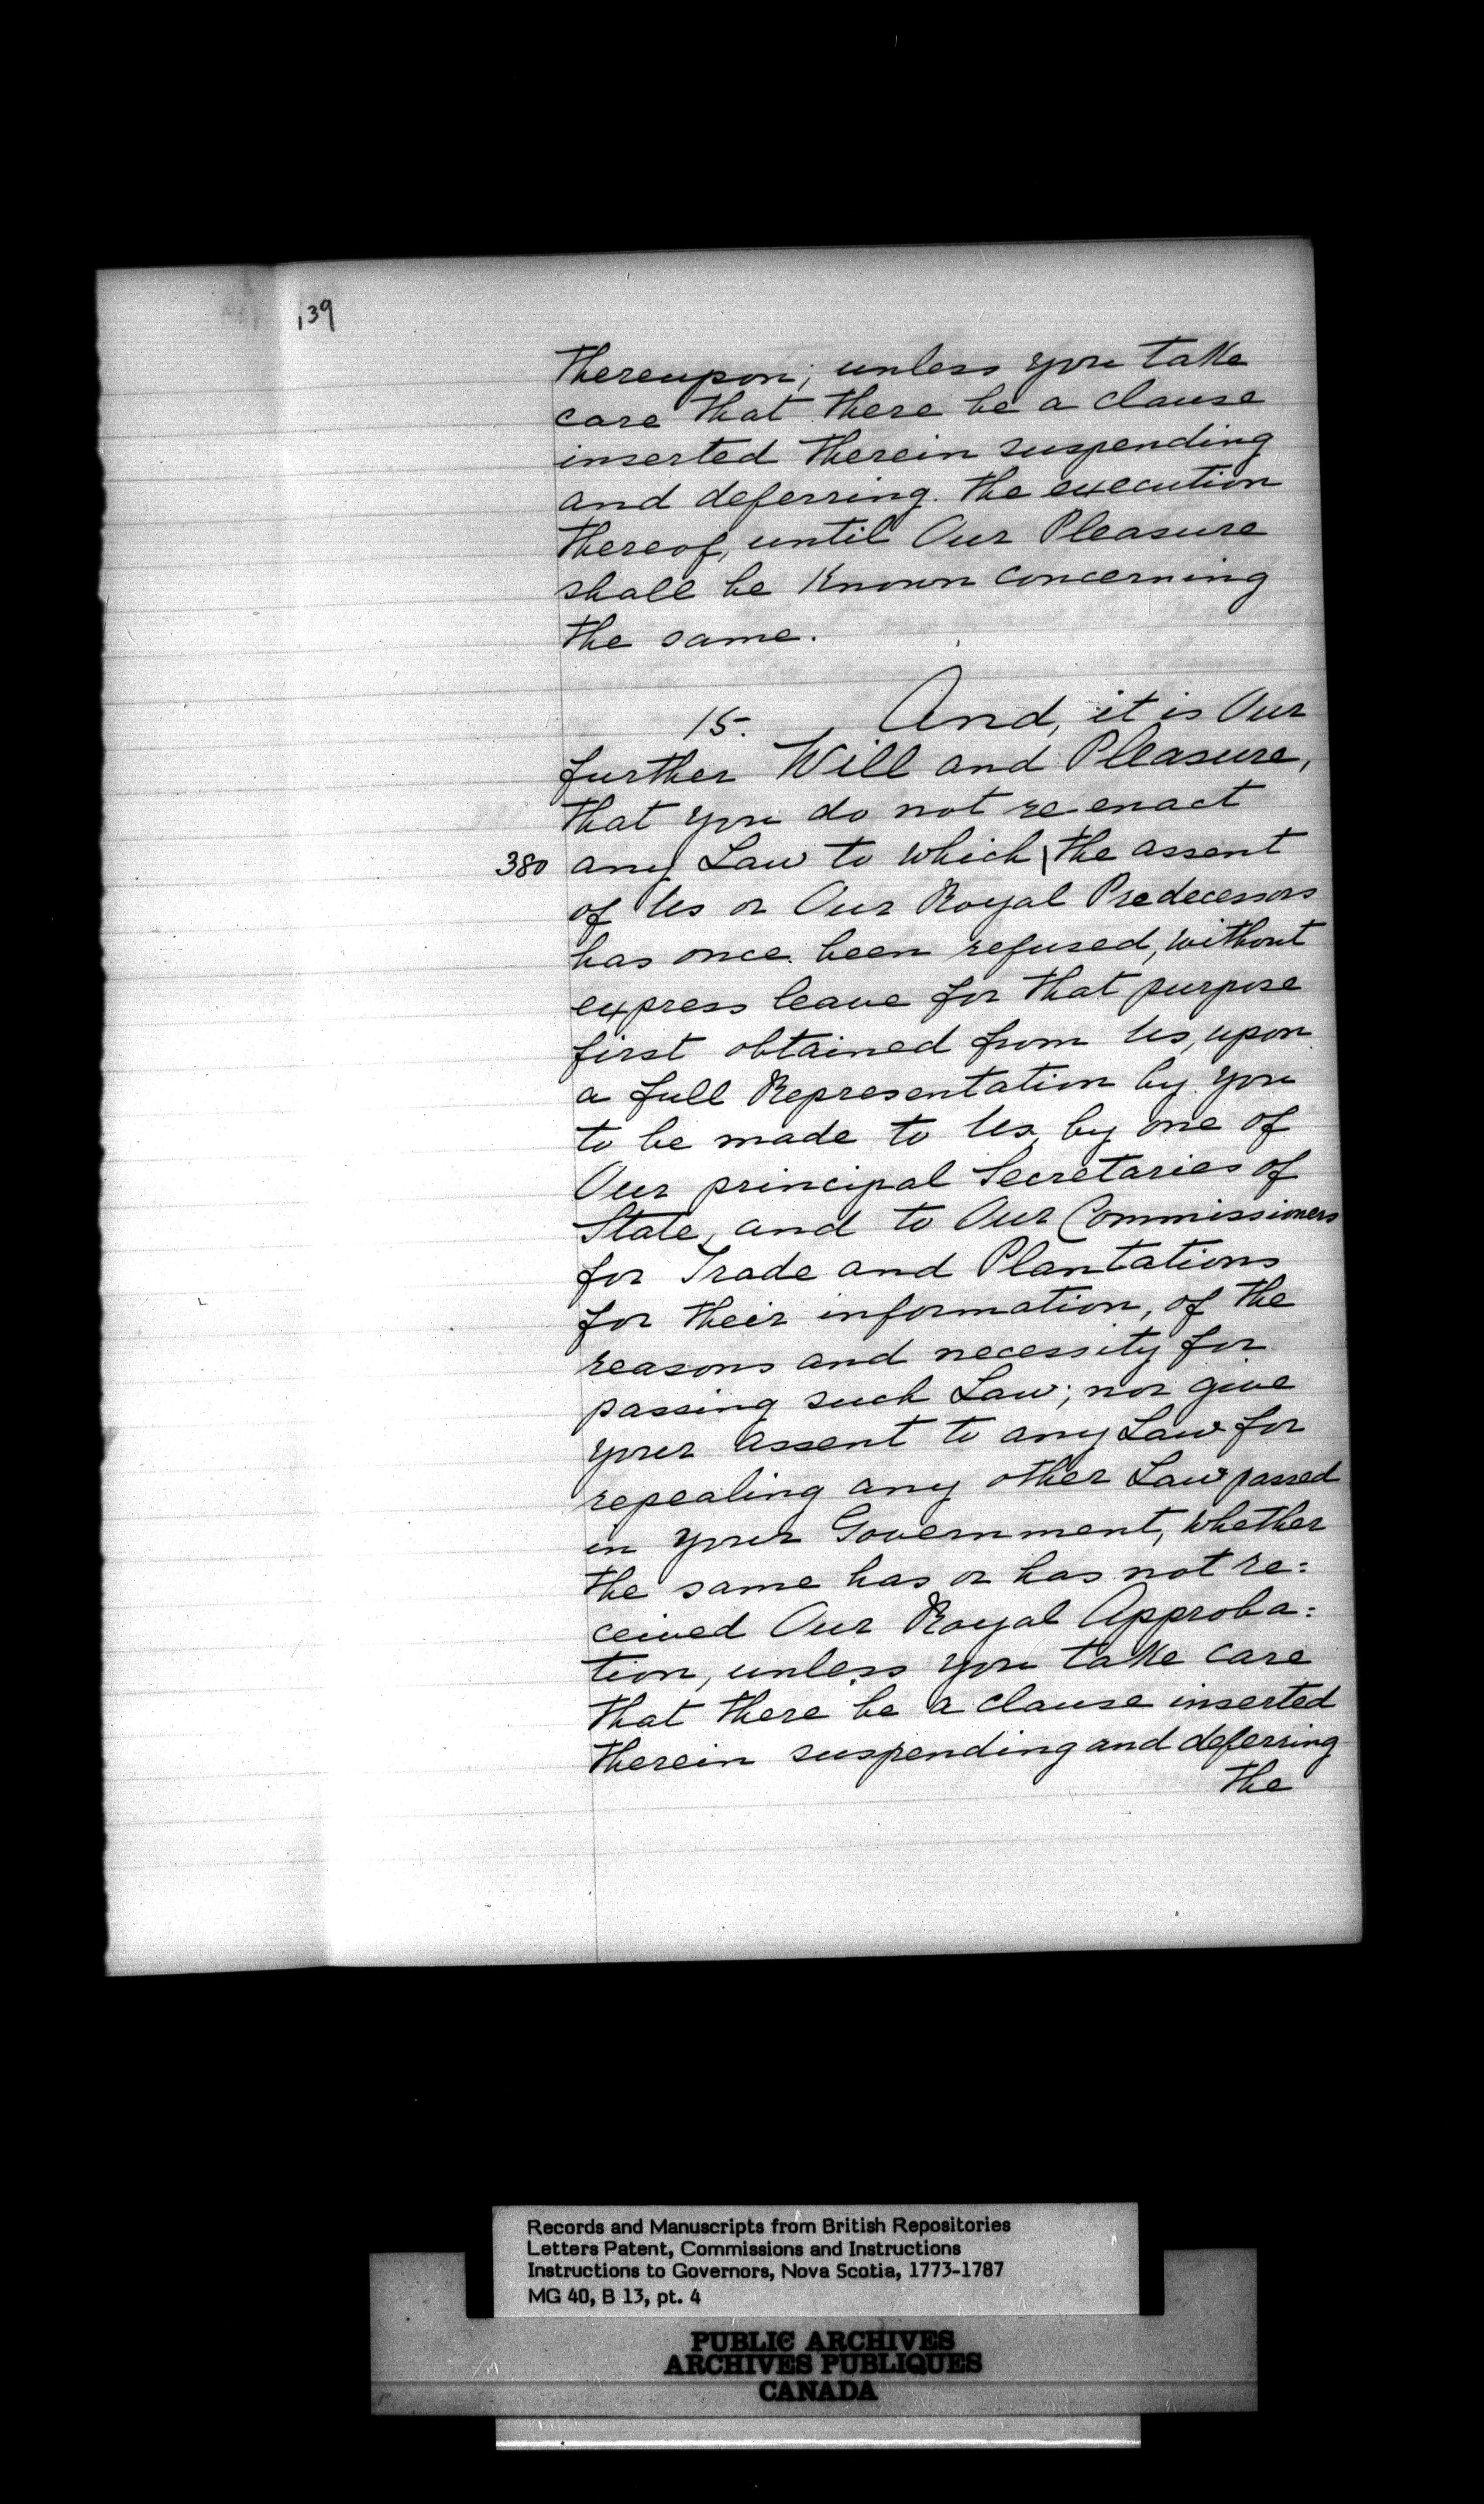 139
thereupon; unless you take
care that there be a clause
inserted therein suspending
and deferring the execution
thereof, until Our Pleasure
shall be known concerning
the same.
15. And, it is Our
further Will and Pleasure,
that you do not re-enact
380 any Law to which \ the assent
of Us or Our Royal Predecessors
has once been refused, without
express leave for that purpose
first obtained from Us, upon
a full Representation by you
to be made to Us, by one of
Our principal Secretaries of
State, and to Our Commissioners
for Trade and Plantations
for their information, of the
reasons and necessity for
passing such Law; nor give
your assent to any Law for
repealing any other Law passed
in your Government, whether
the same has or has not re:
ceived Our Royal Approba:
tion, unless you take care
that there be a clause inserted
therein suspending and deferring
the
Records and Manuscripts from British Repositories
Letters Patent, Commissions and Instructions
Instructions to Governors, Nova Scotia, 1773-1787
MG 40, B 13, pt. 4
PUBLIC ARCHIVES
ARCHIVES PUBLIQUES
CANADA